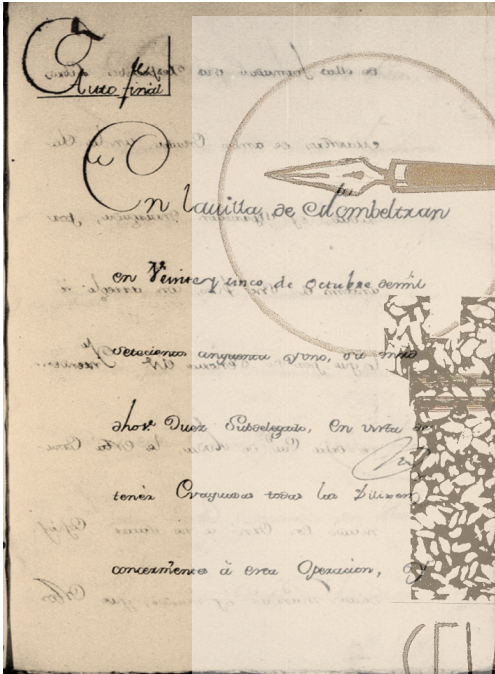 Auto final
En la villa de Mombeltran
en Veinte y cinco de octubre de mil
setecientos cinquenta y uno, su mrd
dhor. Juez Subdelegado, En vista de
tener Evaquadas todas las Dilixen
concernientes â esta Operacion, Dxº
CEI